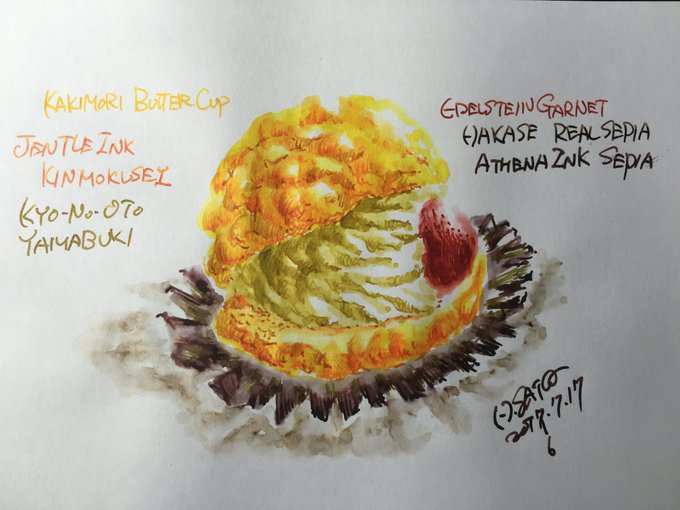 KAKIMORI BUTTER CUP
JENTLE INK
KINMOKUSEI
KYO-NO-OTO
YAMABUKI
EDELSTEIN GARNET
HAKASE REAL SEPIA
ATHENA INK SEPIA
H.SAITO
2017.7.17
6